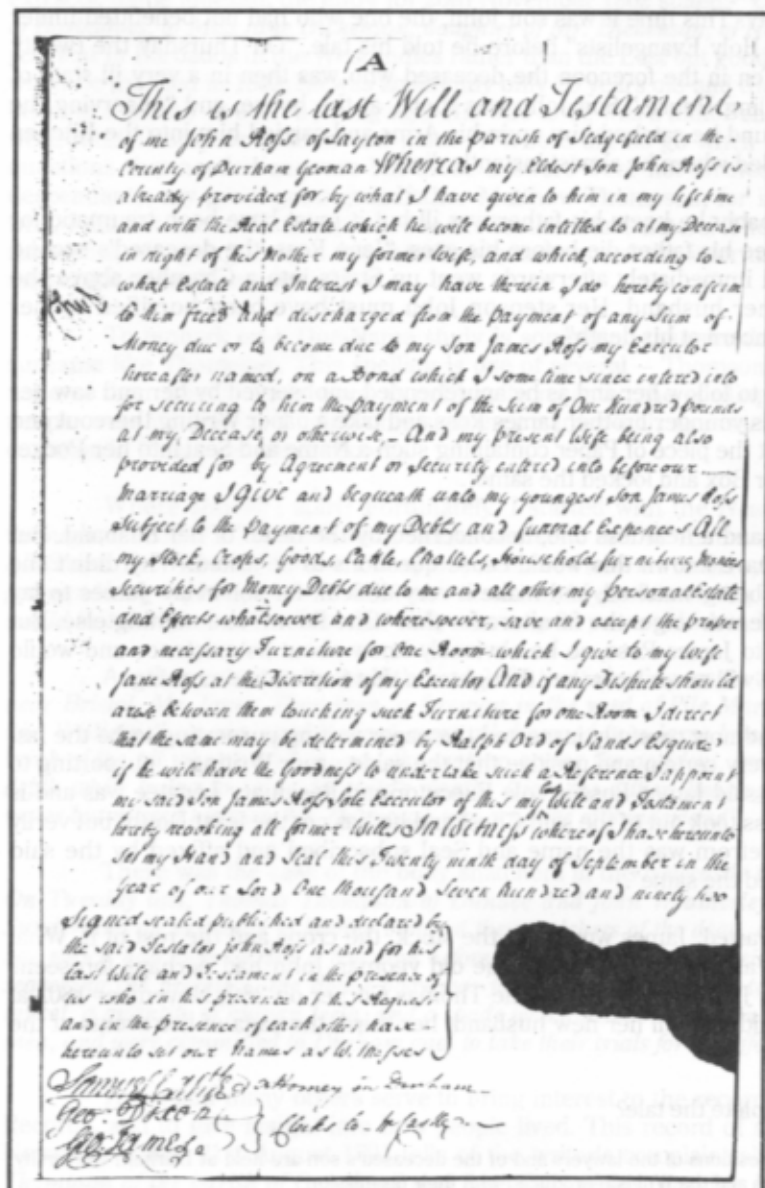 A
This is the last Will and Testament
of me John Ross of Layton in the Parish of Sedgefield in the
County of Durham Yeoman Whereas my Eldest Son John Ross is
already provided for by what I have given to him in my lifetime
and with the Real Estate which he will become intitled to at my Decease
in right of his Mother my former Wife, and which according to
what Estate and Interest I may have therein I do hereby confirm
to him freed and discharged from the Payment of any Sum of
Money due or to become due to my Son James Ross my Executor
hereafter named, on a Bond which I some time since entered into
for securing to him the payment of the Sum of One Hundred pounds
at my Decease, or otherwise, And my present Wife being also
provided for by Agreement or Security entered into before our
Marriage I Give and bequeath unto my youngest Son James Ross
Subject to the Payment of my Debts and funeral Expences All
my Stock, Crops, Goods, Cattle, Chattels, Household furniture, Monies
Securities for Money Debts due to me and all other my personal Estate
and Effects whatsoever and wheresoever, save and except the proper
and necessary Furniture for One Room which I give to my Wife
Jane Ross at the Discretion of my Executor And if any Dispute should
arise between them touching such Furniture for one Room I direct
that the same may be determined by Ralph Ord of Sands Esquire
if he will have the Goodness to undertake such a Reference I appoint
my said Son James Ross Sole Executor of this my Will and Testament
hereby revoking all former Wills In Witness whereof I have hereunto
set my Hand and Seal this Twenty ninth day of September in the
Year of our Lord One thousand Seven hundred and ninety two
Signed sealed published and declared by
the said Testator John Ross as and for his
Last Will and Testament in the presence
of us who in his presence at his Request
and in the presence of each other have
hereunto set our Names as Witnesses
attorney in Durham
Geo.
Clerks to Mr
Geo. James